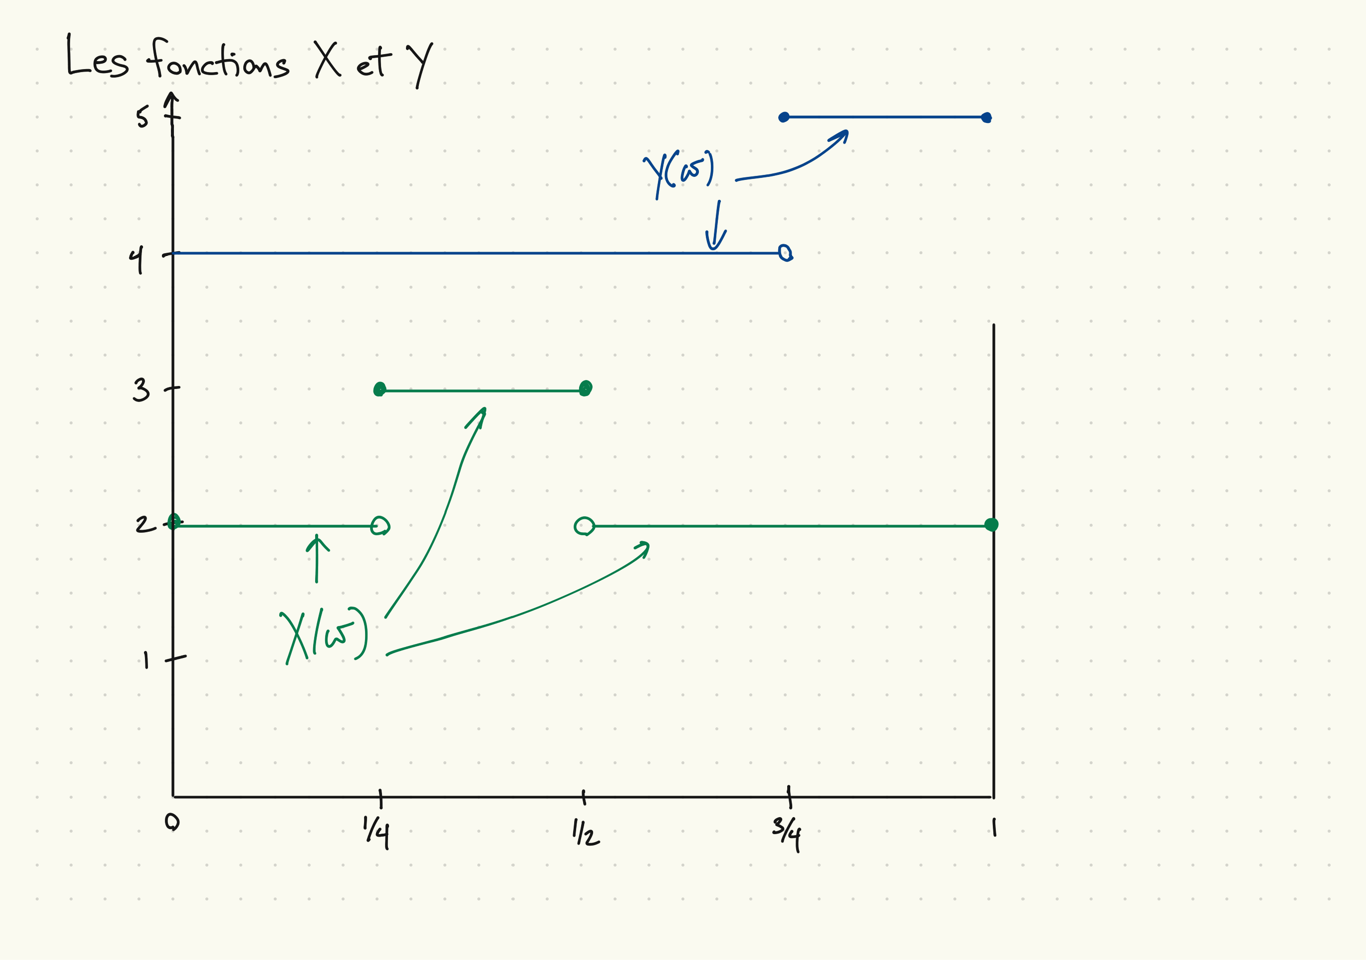 Les fonctions X et Y
5
Y(ω)
4
3
2
X(ω)
1
0 1/4 1/2 3/4 1